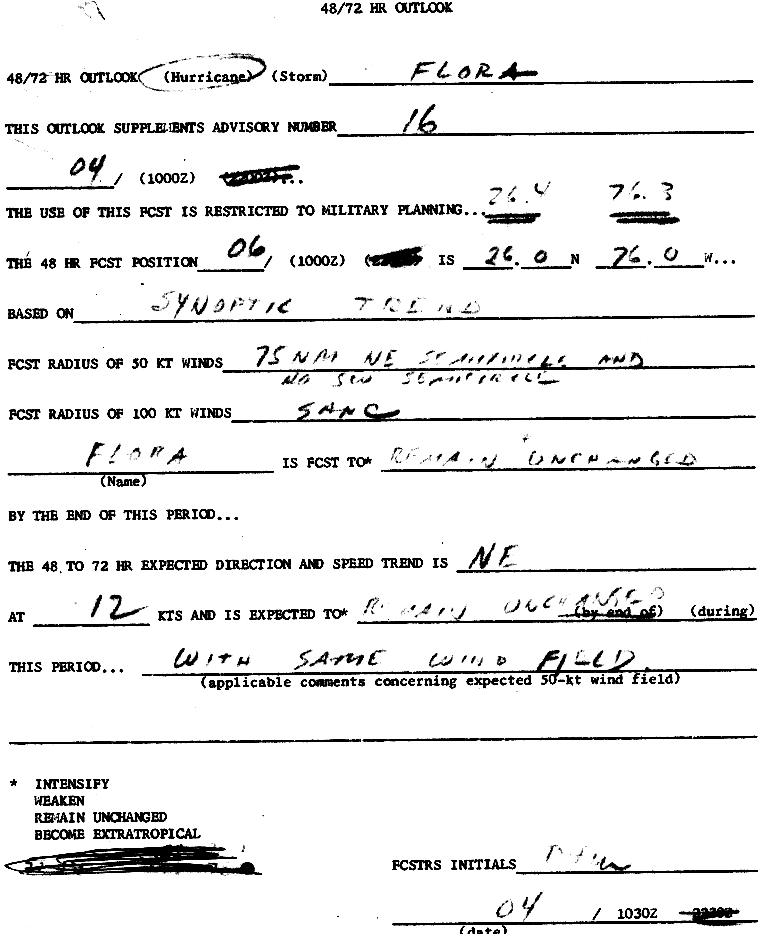 48/72 HR OUTLOOK
48/72 HR OUTLOOK (Hurricane) (Storm) FLORA
THIS OUTLOOK SUPPLEMENTS ADVISORY NUMBER 16
04 / (1000Z)
26.4 76.3
THE USE OF THIS FCST IS RESTRICTED TO MILITARY PLANNING...
THE 48 HR FCST POSITION 06 / (1000Z) IS 26.0 N 76.0 W...
BASED ON SYNOPTIC TREND
FCST RADIUS OF 50 KT WINDS 75 NM NE SEMICIRCLE AND
SW SEMICIRCLE
FCST RADIUS OF 100 KT WINDS
FLORA IS FCST TO* REMAIN UNCHANGED
(Name)
BY THE END OF THIS PERIOD...
THE 48 TO 72 HR EXPECTED DIRECTION AND SPEED TREND IS NE
AT 12 KTS AND IS EXPECTED TO* REMAIN UNCHANGED (by end of) (during)
THIS PERIOD... WITH SAME WIND FIELD.
(applicable comments concerning expected 50-kt wind field)
* INTENSIFY
WEAKEN
REMAIN UNCHANGED
BECOME EXTRATROPICAL
FCSTRS INITIALS
04 / 1030Z 2230Z
(date)